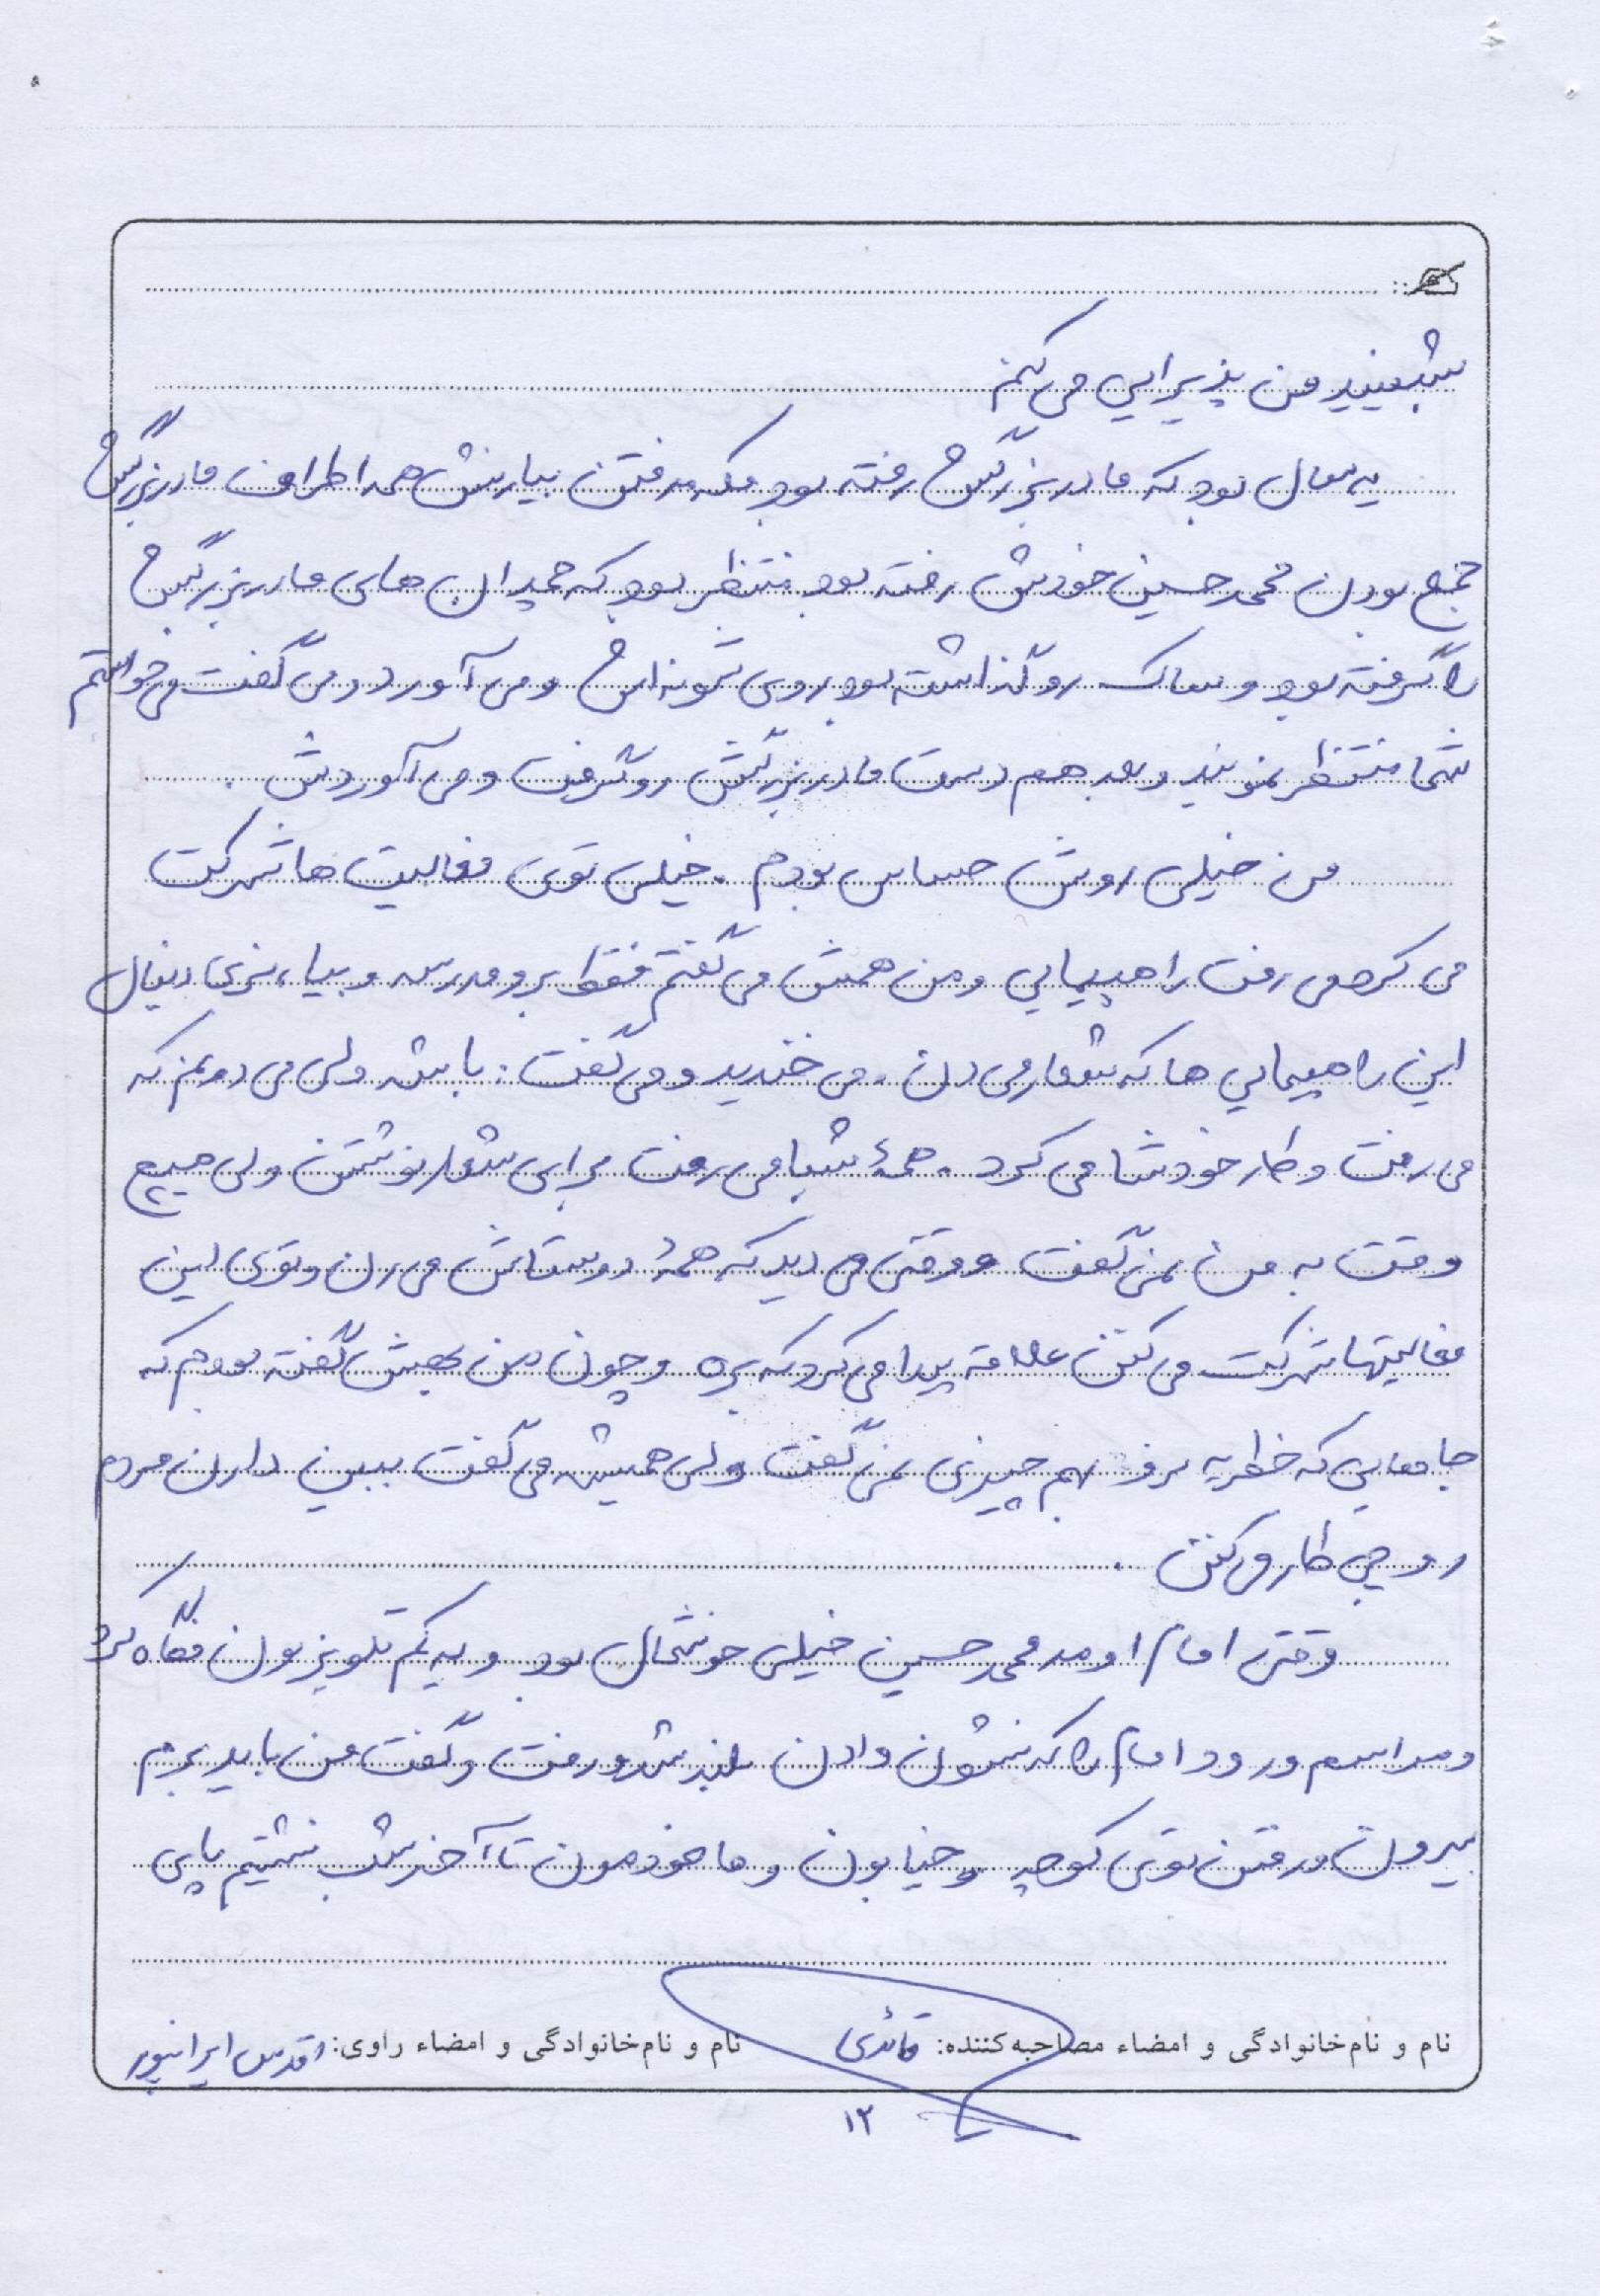 بشینید من پذیرایی می کنم
یه سال بود که مادربزرگش رفته بود مکه رفتن بیارنش همه اطراف مادربزرگش
جمع بودن محمدحسین خودش رفته بود منتظر بود که چمدان های مادربزرگش
را گرفته بود و ساک رو گذاشته بود روی شونه اش و می آورد و می گفت می خواستم
شما منتظر نمونید و بعد هم دست مادربزرگش رو گرفت و می آوردش .
من خیلی روش حساس بودم . خیلی توی فعالیت ها شرکت
می کرد می رفت راهپیمایی و من همش می گفتم فقط برو مدرسه و بیا، نری دنبال
این راهپیمایی ها که شعار می دن . می خندید و می گفت : باشه ولی می دونم که
می رفت و کار خودشا می کرد . همهٔ شبا می رفت برای شعار نوشتن ولی هیچ
وقت به من نمی گفت و وقتی می دید که همهٔ دوستاش می رن و توی این
فعالیتها شرکت می کنن علاقه پیدا می کرد که بره و چون من بهش گفته بودم که
جاهایی که خطریه نرو بهم چیزی نمی گفت ولی همیشه می گفت ببین دارن مردم
رو چی کار می کنن .
وقتی امام اومد محمدحسین خیلی خوشحال بود و یه کم تلویزیون نگاه کرد
و مراسم ورود امام را که نشون دادن بلند شد و رفت و گفت من باید برم
بیرون و رفتن توی کوچه و خیابون و ما خودمون تا آخر شب نشستیم پای
نام و نام‌خانوادگی و امضاء مصاحبه‌کننده: قائدی نام و نام‌خانوادگی و امضاء راوی: اقدس ایرانپور
۱۲